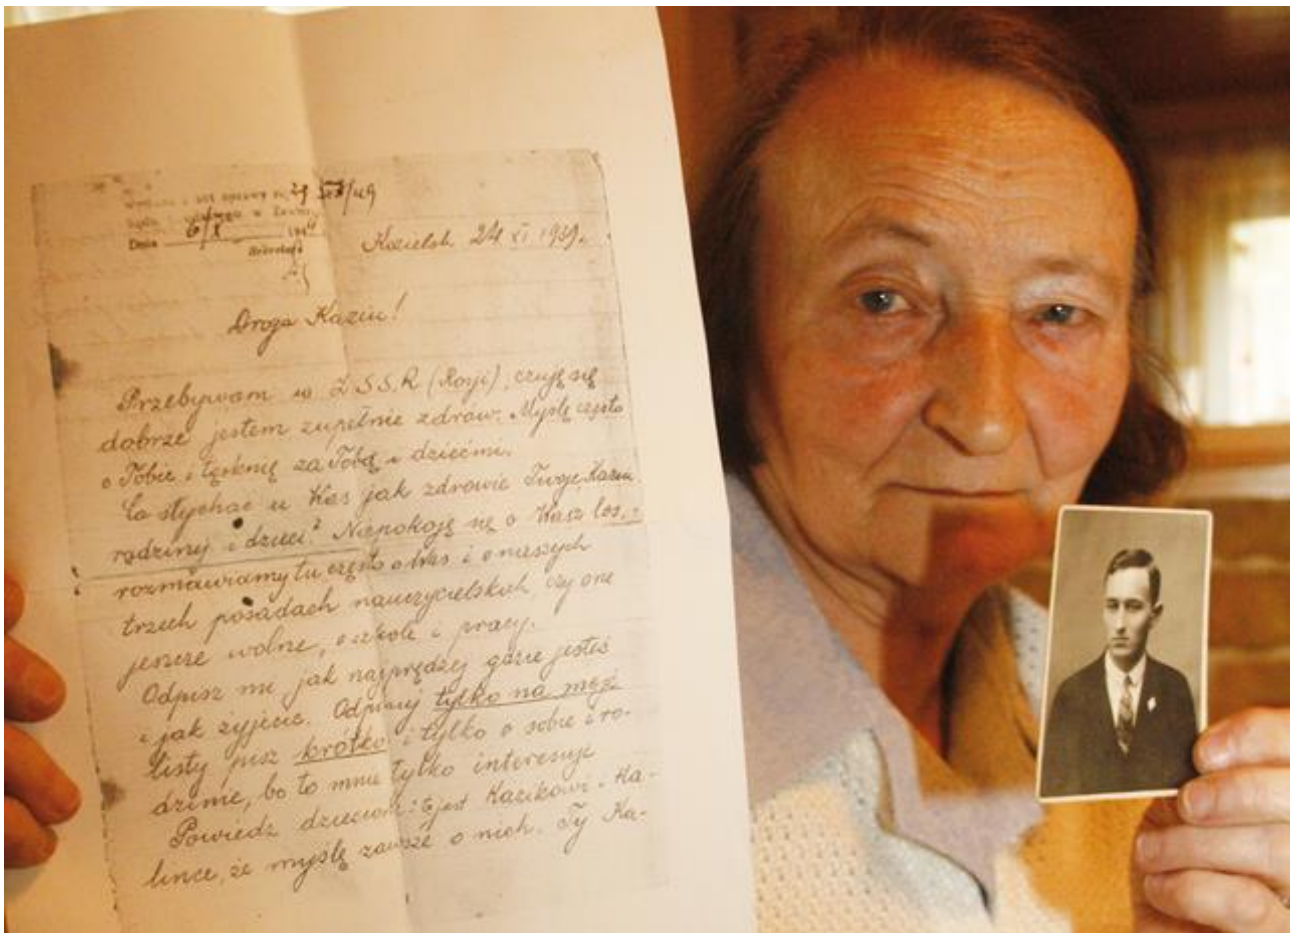 Dnia 6/X 194
Sekretarz
Kozielsk 24 XI 1939.
Droga Kaziu!
Przebywam w Z.S.S.R (Rosji), czuję się
dobrze jestem zupełnie zdrów. Myślę często
o Tobie i tęsknię za Tobą i dziećmi.
Co słychać u Was jak zdrowie Twoje, Kaziu
rodziny i dzieci? Niepokoję się o Wasz los,
rozmawiamy tu często o Was i o naszych
trzech posadach nauczycielskich, czy one
jeszcze wolne, o szkole i pracy.
Odpisz mi jak najprędzej gdzie jesteś
i jak żyjecie. Odpisuj tylko na moje
listy pisz krótko i tylko o sobie i ro-
dzinie, bo to mnie tylko interesuje
Powiedz dzieciom: to jest Kazikowi i Ha-
lince, że myślę zawsze o nich. Ty Ka-